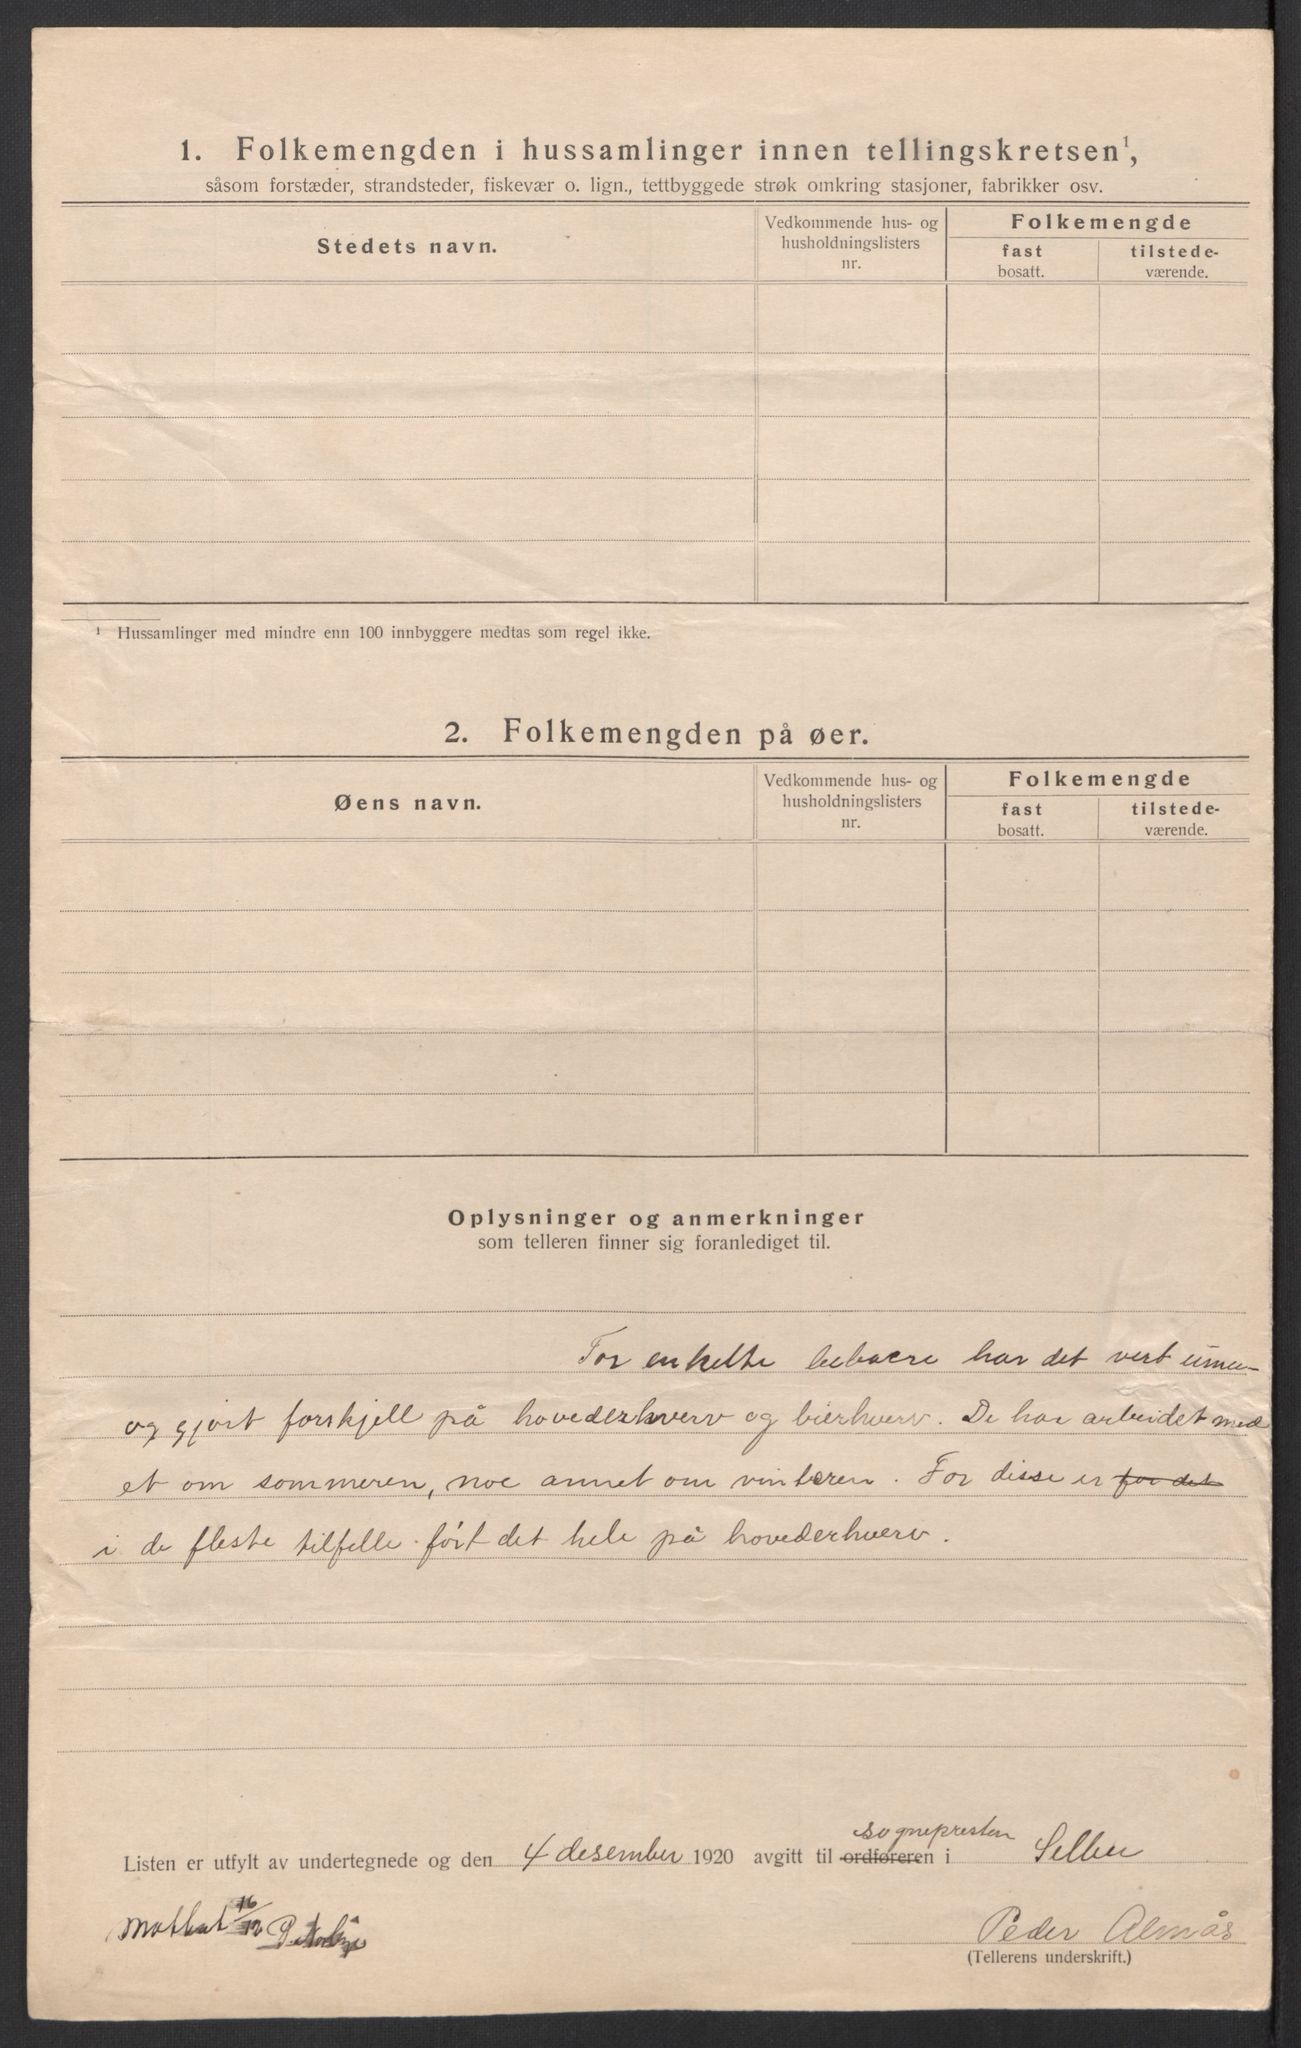 1. Folkemengden i hussamlinger innen tellingskretsen¹,
såsom forstæder, strandsteder, fiskevær o. lign., tettbyggede strøk omkring stasjoner, fabrikker osv.
Stedets navn.
Vedkommende hus- og
husholdningslisters
nr.
Folkemengde
fast
bosatt.
tilstede-
værende.
¹ Hussamlinger med mindre enn 100 innbyggere medtas som regel ikke.
2. Folkemengden på øer.
Øens navn.
Vedkommende hus- og
husholdningslisters
nr.
Folkemengde
fast
bosatt.
tilstede-
værende.
Oplysninger og anmerkninger
som telleren finner sig foranlediget til.
For enkelte bebuere har det vert umu-
og gjort forskjell på hovederhverv og bierhverv. De har arbeidet med
et om sommeren, noe annet om vinteren. For disse er for det
i de fleste tilfelle ført det hele på hovederhverv.
sognepresten
Listen er utfylt av undertegnede og den 4 desember 1920 avgitt til ordføreren i Selbu
Mottat 16/12
Peder Almås
(Tellerens underskrift.)